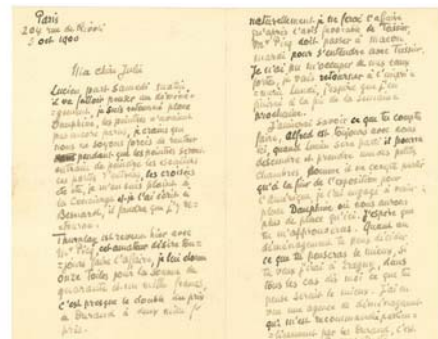 Paris
204 rue de Rivoli
2 oct 1900
Ma chère Julie
Lucien part samedi matin
il va falloir penser au déména-
gement, je suis retourné place
Dauphine, les peintres n'avaient
pas encore fini, je crains que
nous ne soyons forcés de rentrer
pendant que les peintres seront
en train de peindre les escaliers
les portes d'entrée, les croisées
etc etc, je m'en suis plaint à
la Concierge et j'ai écrit à
Besnard, il faudra que j'y re-
tourne.
Thornley est revenu hier avec
Mr Picq, cet amateur désire tou-
jours faire l'affaire, je lui donne
onze toiles pour la somme de
quarante et un mille francs,
c'est presque le double du prix
à Durand à deux mille f
près.
naturellement je ne ferai l'affaire
qu'après l'avis de
Mr Picq doit passer à
mardi pour s'entendre avec
Je n'ai pu m'occuper de mes eaux
fortes, je vais retourner à l'impri-
merie lundi, j'espère que j'en
finirai à la fin de la semaine
prochaine.
J'aimerais savoir ce que tu compte
faire, Alfred est toujours avec nous
ici, quand Lucien sera parti il pourra
descendre et prendre une des petites
chambres, comme il ne compte partir
qu'à la fin de l'exposition pour
l'Amérique je l'ai engagé à venir
place Dauphine où nous aurons
plus de place qu'ici. J'espère que
tu m'approuveras. Quand au
déménagement tu nous diras
ce que tu penseras le mieux, si
tu veux j'irai à Eragny, dans
tous les cas dis moi ce que tu
pense serait le mieux. J'ai en
vue une agence de déménagement
qui m'est recommandée
par les Durand, c'est